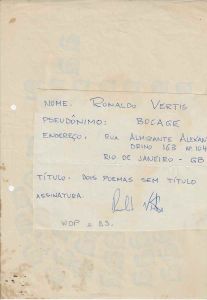 NOME: RONALDO VERTIS
PSEUDÔNIMO: BOCAGE
ENDEREÇO: RUA ALMIRANTE ALEXAN
DRINO 163 Nº 104
RIO DE JANEIRO - GB
TÍTULO: DOIS POEMAS SEM TÍTULO
ASSINATURA: